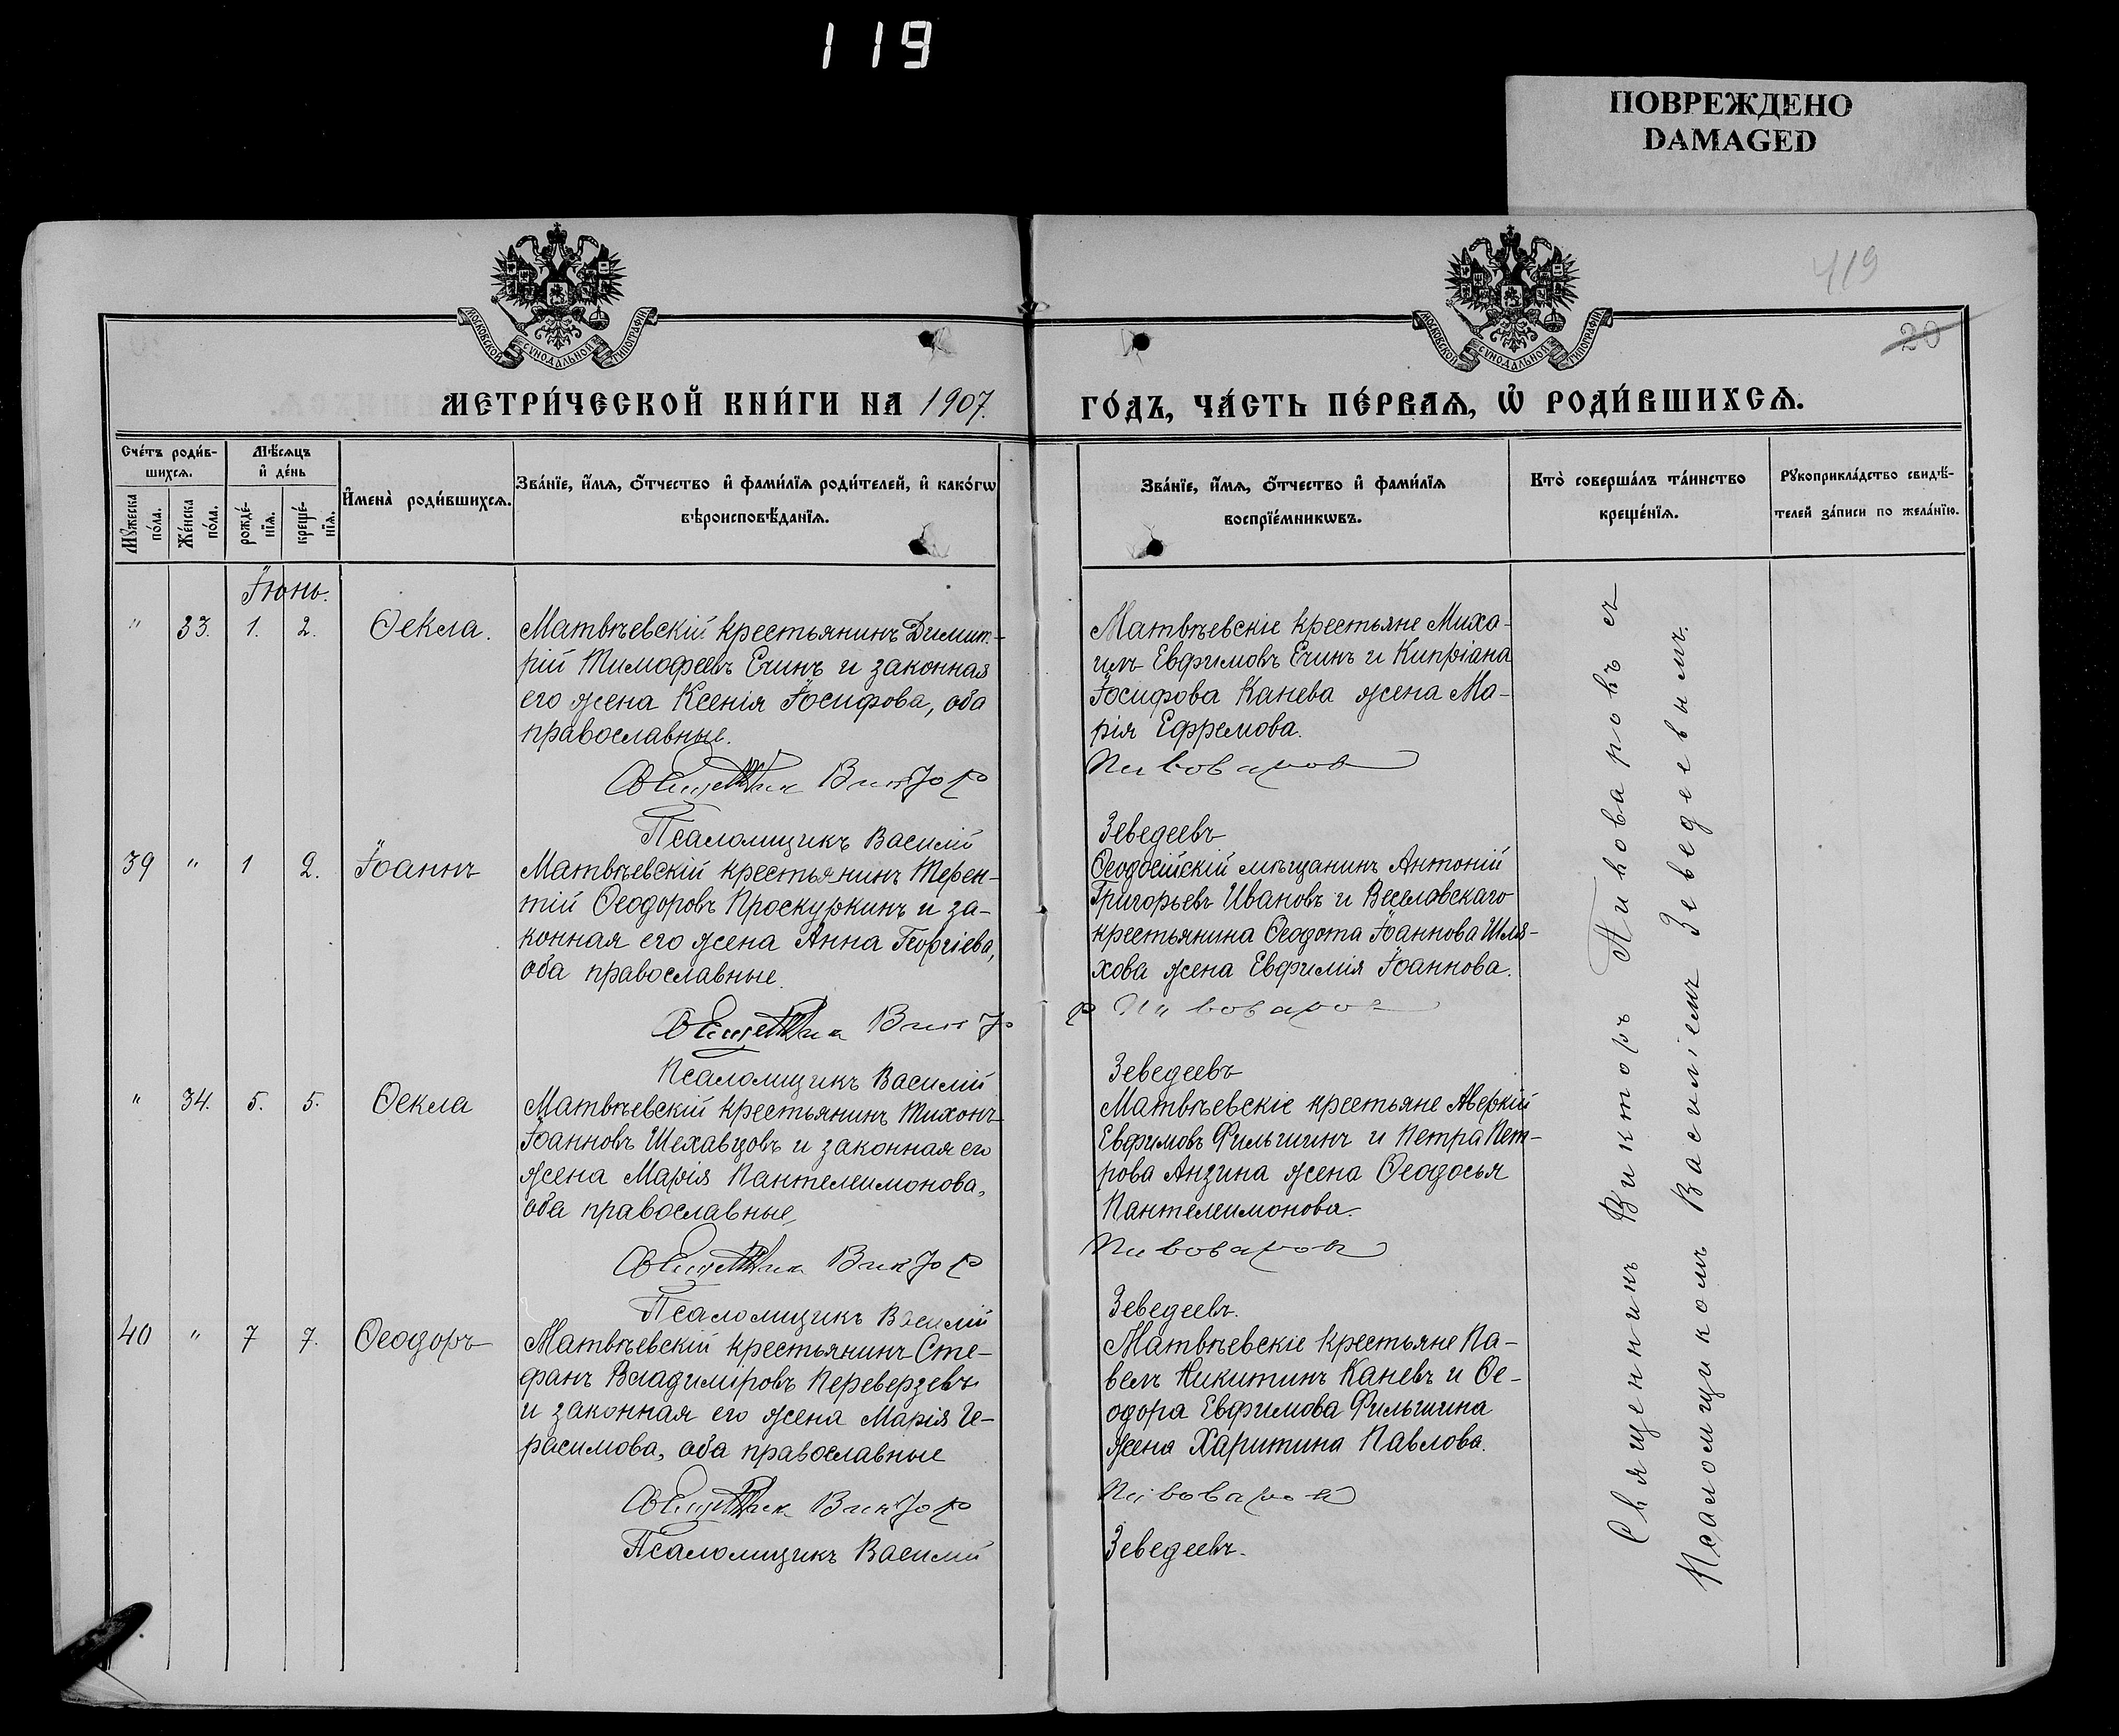 119
ПОВРЕЖДЕНО
DAMAGED
419
20
МОСКОВСКОЙ СѴНОДАЛЬНОЙ ТИПОГРАФІИ
МОСКОВСКОЙ СѴНОДАЛЬНОЙ ТИПОГРАФІИ
МЕТРИ́ЧЕСКОЙ КНИ́ГИ НА 1907.
ГО́ДЪ, ЧА́СТЬ ПЕ́РВАѦ, Ѡ҆ РОДИ́ВШИХСѦ.
Сче́тъ роди́в-
шихсѧ.
Мꙋ́жеска по́ла.
Же́нска по́ла.
Мѣ́сѧцъ
и҆ де́нь
рожде́-
нїѧ.
креще́-
нїѧ.
И҆мена̀ роди́вшихсѧ.
Зва́нїе, и҆́мѧ, ѻ҆́тчество и҆ фами́лїѧ роди́телей, и҆ како́гѡ
вѣроисповѣ́данїѧ.
Зва́нїе, и҆́мѧ, ѻ҆́тчество и҆ фами́лїѧ
воспрїе́мникѡвъ.
Кто̀ соверша́лъ та́инство
креще́нїѧ.
Рꙋкоприкла́дство свидѣ́-
телей за́писи по жела́нїю.
Іюнь.
" 33. 1. 2. Ѳекла.
Матвѣевскій крестьянинъ Димит-
рій Тимофеевъ Ечинъ и законная
его жена Ксенія Іосифова, оба
православные.
Священникъ Викторъ
Псаломщикъ Василій
Матвѣевскіе крестьяне Миха-
илъ Евфимовъ Ечинъ и Кипріана
Іосифова Канева жена Ма-
рія Ефремова.
Пивоваровъ
Зеведеевъ
39 " 1 2. Іоаннъ
Матвѣевскій крестьянинъ Терен-
тій Ѳеодоровъ Проскуркинъ и за-
конная его жена Анна Георгіева,
оба православные.
Священникъ Викто
Псаломщикъ Василій
Ѳеодосійскій мѣщанинъ Антоній
Григорьевъ Ивановъ и Веселовскаго
крестьянина Ѳеодота Іоаннова Шля-
хова жена Евфимія Іоаннова.
р Пивоваров
Зеведеевъ
" 34. 5. 5. Ѳекла
Матвѣевскій крестьянинъ Тихонъ
Іоанновъ Шехавцовъ и законная его
жена Марія Пантелеимонова,
оба православные
Священникъ Викторъ
Псаломщикъ Василій
Матвѣевскіе крестьяне Аверкій
Евфимовъ Фильшинъ и Петра Пет-
рова Анзина жена Ѳеодосья
Пантелеимонова.
Пивоваровъ
Зеведеевъ.
40 " 7 7. Ѳеодоръ
Матвѣевскій крестьянинъ Сте-
фанъ Владиміровъ Переверзевъ
и законная его жена Марія Ге-
расимова, оба православные
Священникъ Викторъ
Псаломщикъ Василій
Матвѣевскіе крестьяне Па-
велъ Никитинъ Каневъ и Ѳе-
одора Евфимова Фильшина
жена Харитина Павлова.
Пивоваровъ
Зеведеевъ.
Священникъ Викторъ Пивоваровъ съ
Псаломщикомъ Василіемъ Зеведеевымъ.